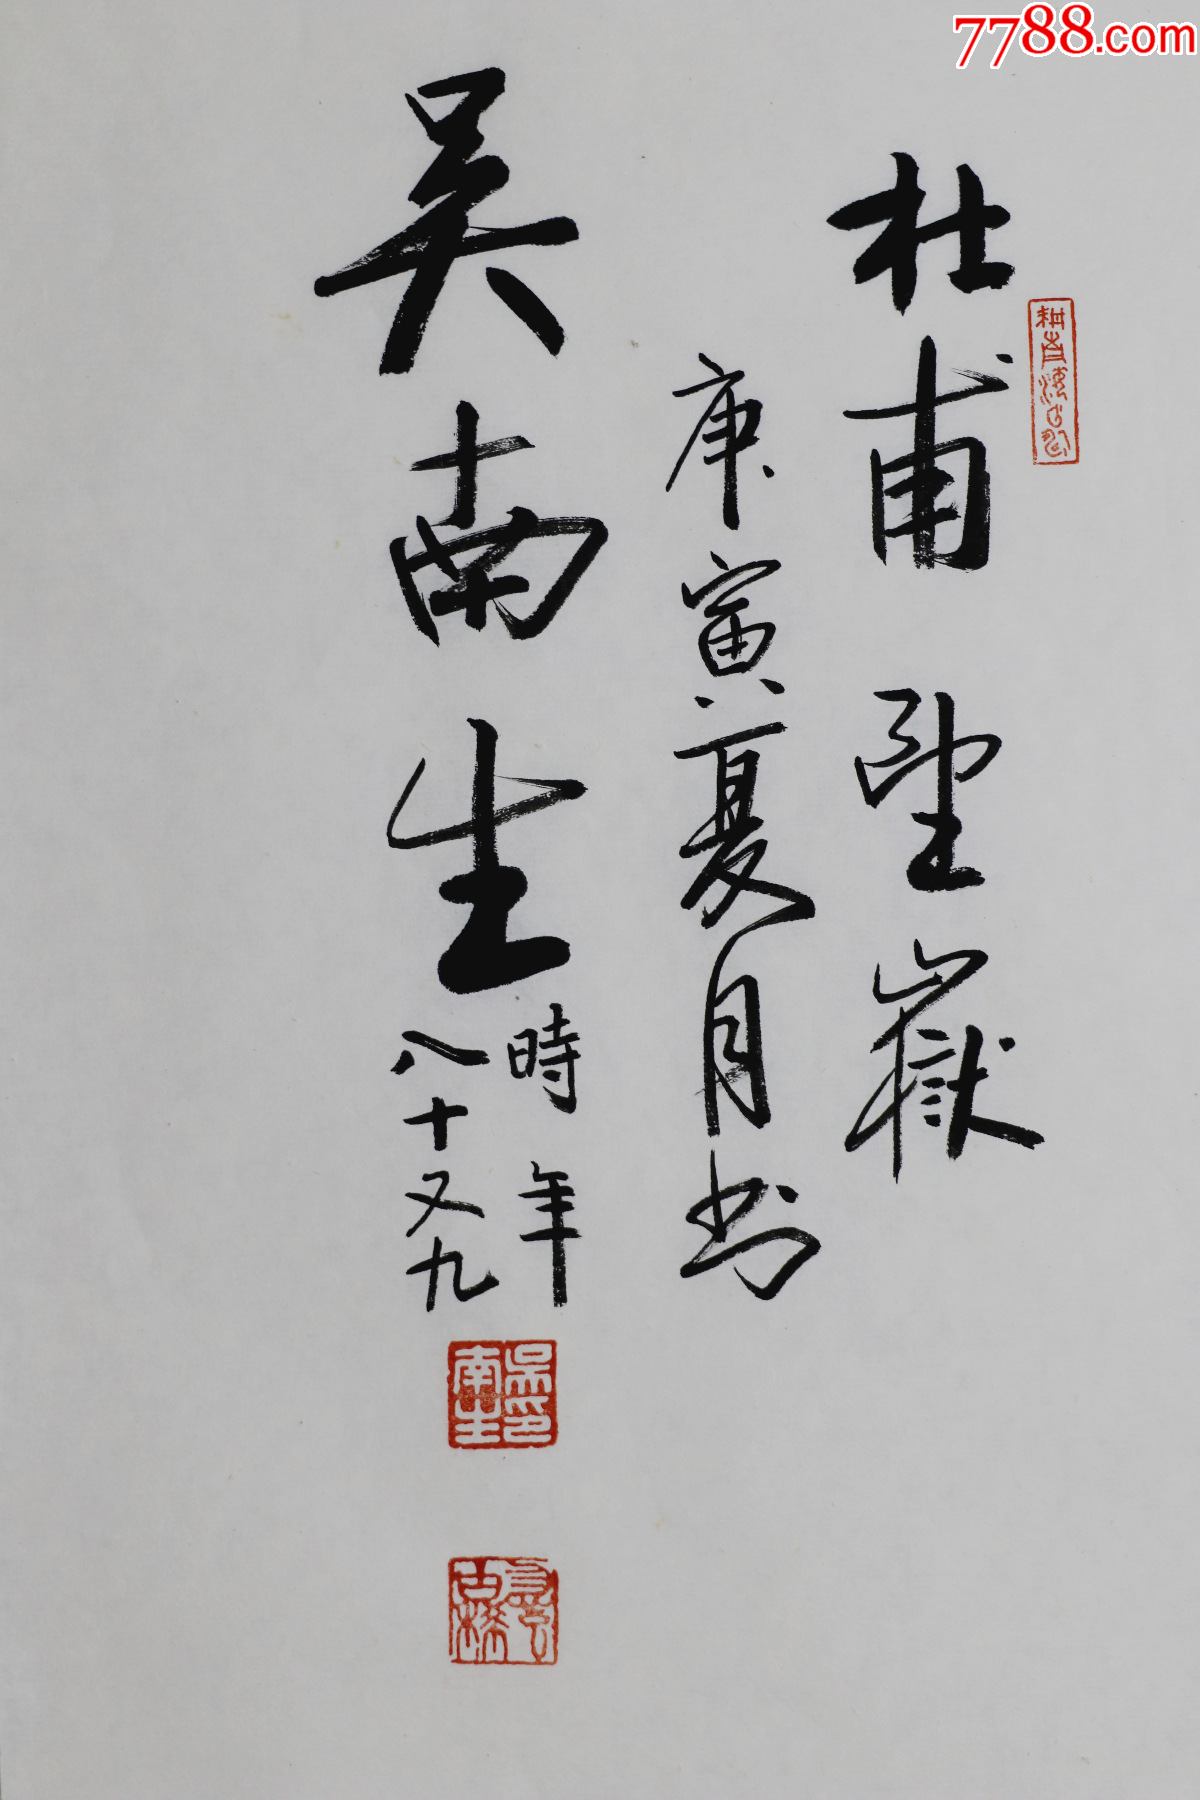 7788.com
杜甫望嶽
庚寅夏月书
吴南生
時年
八十又九
吴印
南生